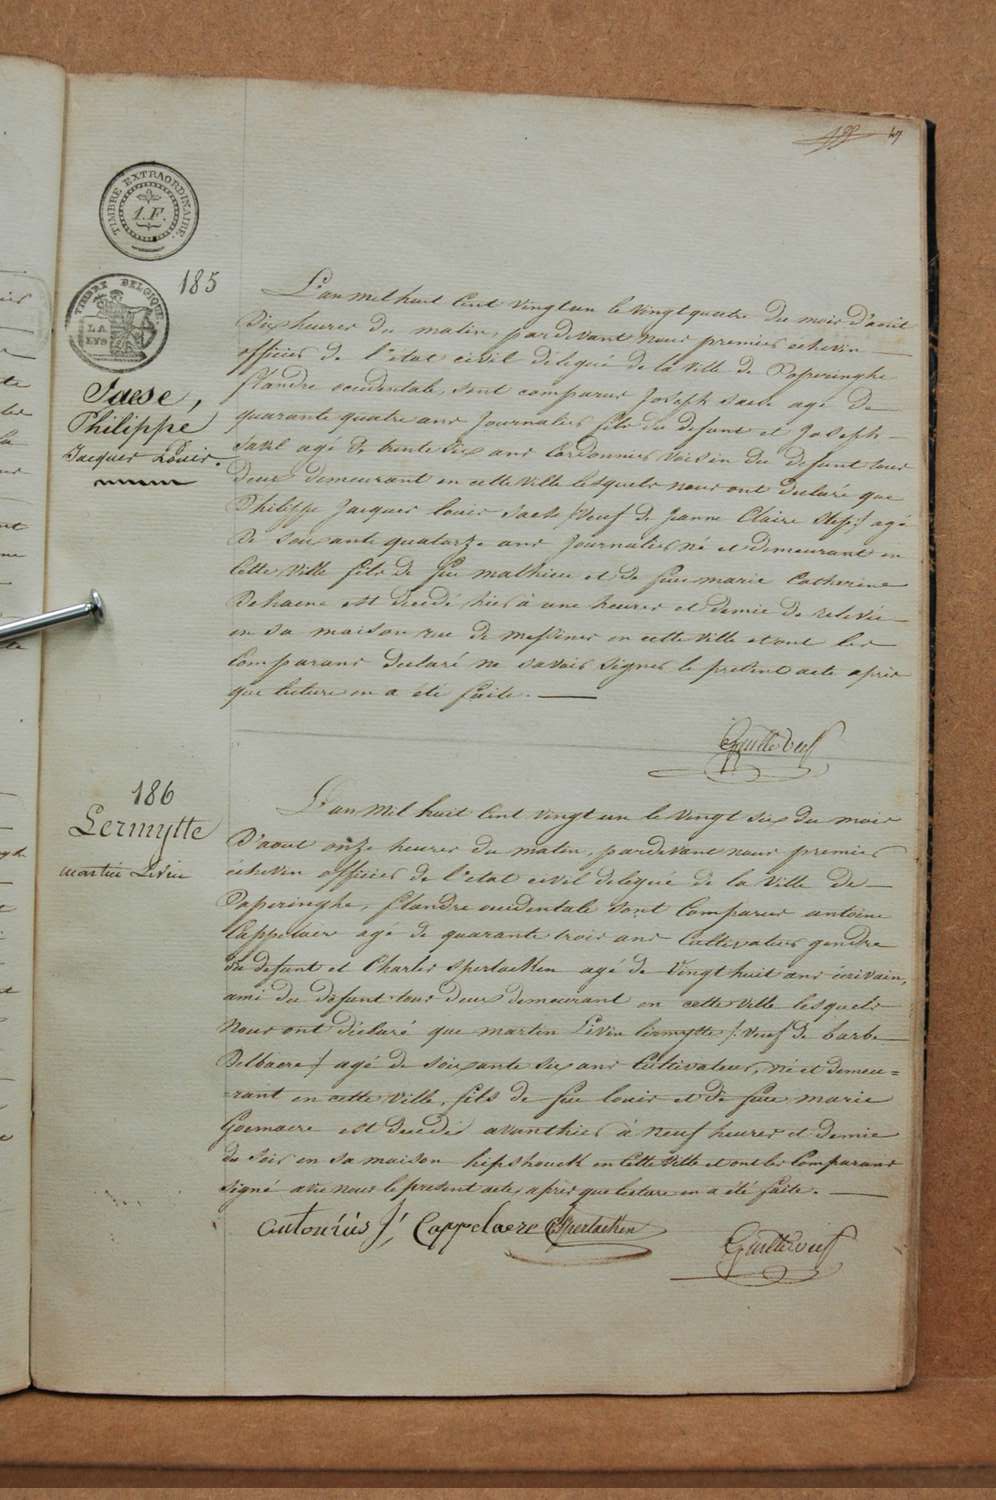 47
TIMBRE EXTRAORDINAIRE.
1.F.
TIMBRE BELGIQUE
LA
LYS
185
Saese,
Philippe
Jacques Louis.
L'an mil huit Cent vingt un le vingt quatre du mois d'août
Dix heures du matin, pardevant nous premier échevin
officier de l'état civil délegué de la ville de Poperinghe
flandre occidentale, sont comparus Joseph Saese agé de
quarante quatre ans Journalier fils du defunt et Joseph
agé de trente six ans Cordonnier voisin du defunt tous
deux demeurant en cette ville lesquels nous ont declaré que
Philippe Jacques Louis Saese veuf de Jeanne Claire agé
De soixante quatorze ans Journalier né et demeurant en
Cette Ville fils de feu mathieu et de feue marie Catherine
Dehaene est decedé hier à une heures et demie de relevée
en sa maison rue de messines en cette ville et ont les
Comparans declaré ne savoir signer le present acte après
que lecture en a été faite.
186
Lermytte
martin Livin
L'an mil huit Cent vingt un le vingt six du mois
D'aout onze heures du matin, pardevant nous premier
échevin officier de l'état civil delegué de la ville de
Poperinghe, flandre occidentale sont Comparus antoine
Cappelaere agé de quarante trois ans Cultivateur gendre
du defunt et Charles Sperlaeken agé de Vingt huit ans écrivain,
ami du defunt tous deux demeurant en cette ville lesquels
Nous ont déclaré que martin Livin Lermytte /: veuf de barbe
Delbaere :/ agé de soixante six ans Cultivateur, né et demeu=
=rant en cette ville, fils de feu louis et de feue marie
Goemaere est decedé avanthier à neuf heures et demie
du soir en sa maison hipshouck en Cette Ville et ont les Comparans
signé avec nous le present acte, après que lecture en a été faite.
antonius J, Cappelaere CSperlaeken